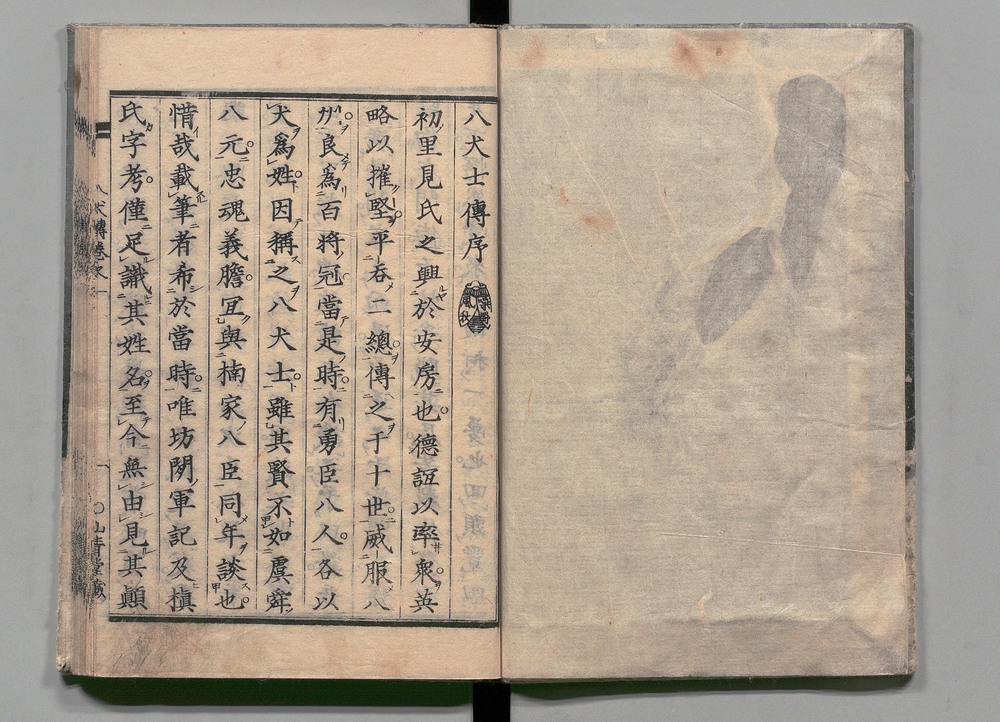 八犬士傳序
初里見氏之興於安房也德誼以率衆英
略以摧堅平呑二總傳之于十世威服八
州良爲百將冠當是時有勇臣八人各以
犬爲姓因稱之八犬士雖其賢不如虞舜
八元忠魂義膽宜與楠家八臣同年談也
惜哉載筆者希於當時唯坊間軍記及槇
氏字考僅足識其姓名至今無由見其顛
山青堂藏